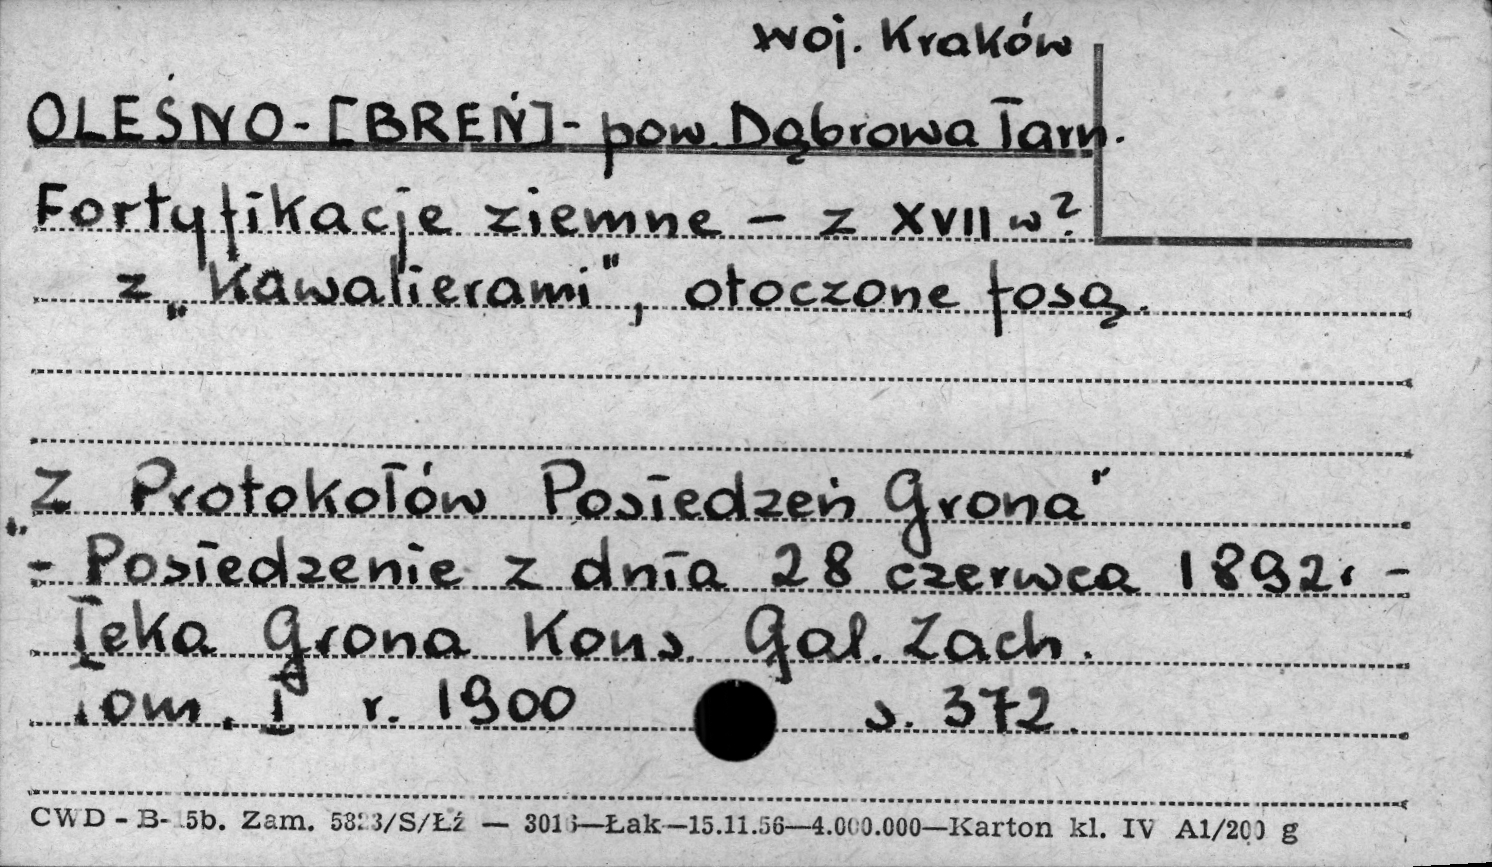 woj. Kraków
OLEŚNO-[BREŃ]- pow. Dąbrowa Tarn.
Fortyfikacje ziemne – z XVII w?
z „Kawalierami”, otoczone fosą.
„Z Protokołów Posiedzeń Grona”
- Posiedzenie z dnia 28 czerwca 1892r -
Teka Grona Kons. Gal. Zach.
Tom. I r. 1900 s. 372.
CWD - B- 5b. Zam. S/Łź — Łak—15.11.56—4.000.000—Karton kl. IV A1/200 g